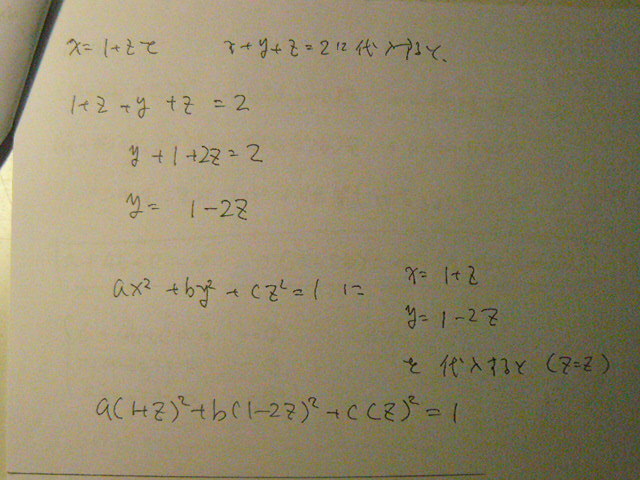 x=1+zを x+y+z=2に代入すると、
1+z+y+z=2
y+1+2z=2
y=1-2z
ax²+by²+cz²=1に
x=1+z
y=1-2z
を代入すると (z=z)
a(1+z)²+b(1-2z)²+c(z)²=1